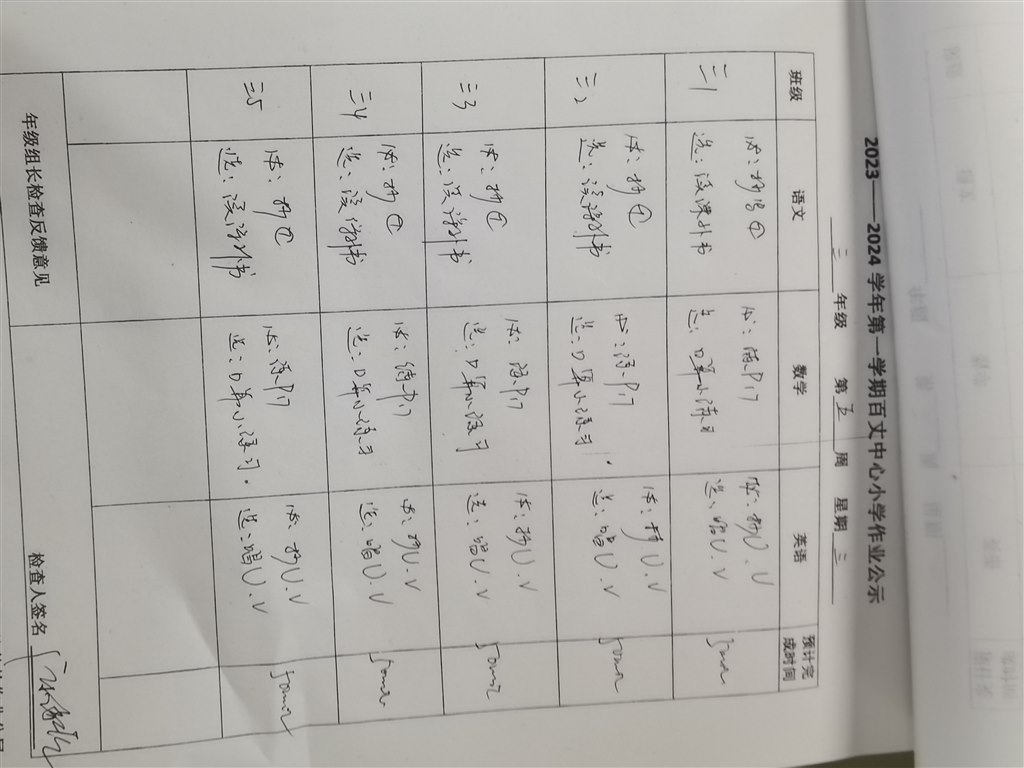 2023——2024学年第一学期百丈中心小学作业公示
三 年级 第 五 周 星期 三
班级 语文 数学 英语 预计完成时间
三1
选：读课外书
选：口算小练习
选：唱U.V
三2
必：抄④
选：读课外书
必：练P17
选：口算小练习.
必：抄U.V
选：唱U.V
50min
三3
必：抄④
选：读课外书
必：练P17
选：口算小练习
必：抄U.V
选：唱U.V
50min
三4
必：抄④
选：读课外书
必：练P17
选：口算小练习
必：抄U.V
选：唱U.V
50min
三5
必：抄④
选：读课外书
必：练P17
选：口算小练习.
必：抄U.V
选：唱U.V
50min
年级组长检查反馈意见
检查人签名